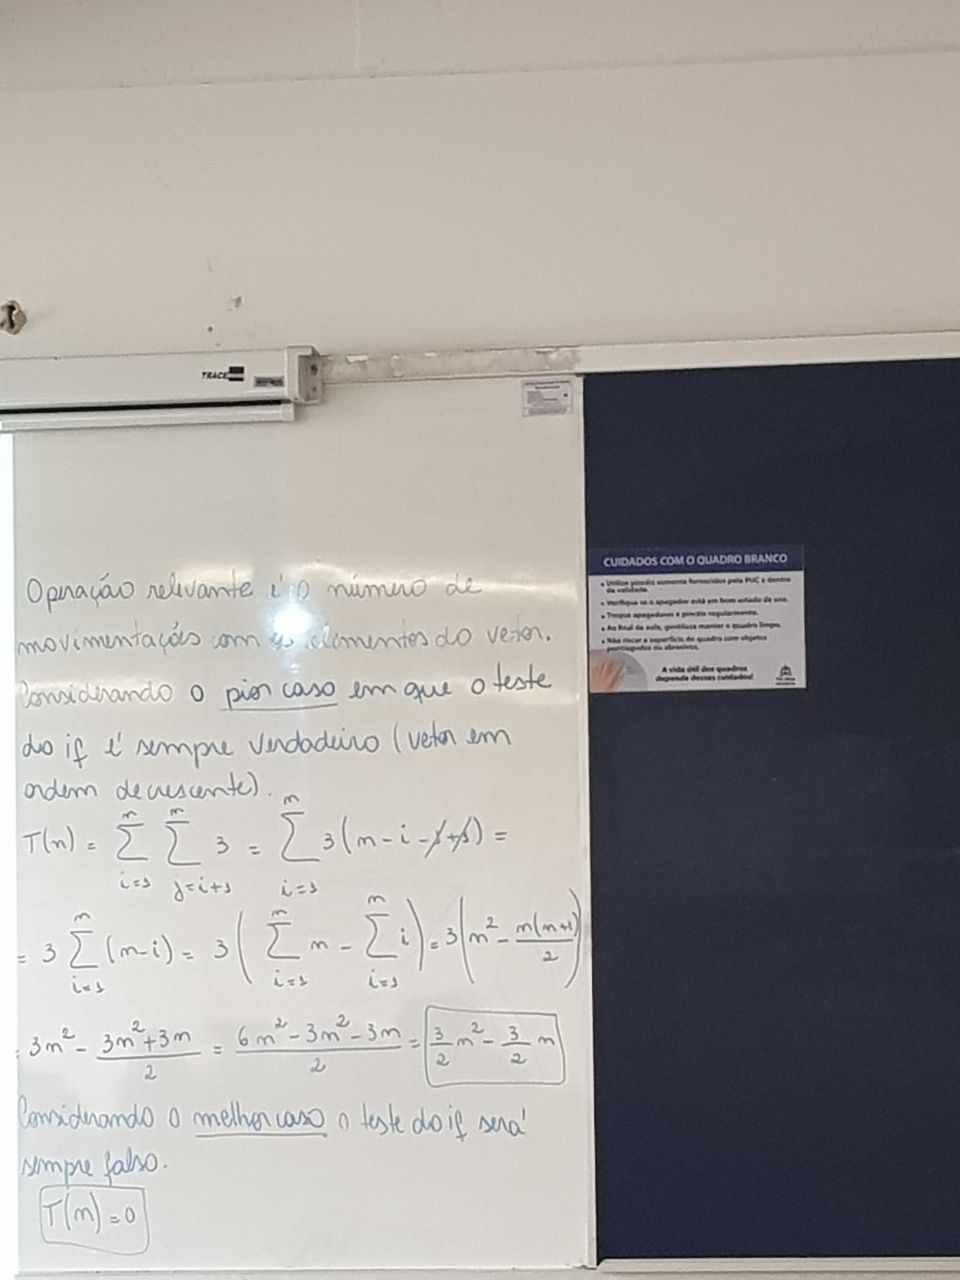 TRACE
Operação relevante é o número de
movimentações com os elementos do vetor.
Considerando o pior caso em que o teste
do if é sempre verdadeiro (vetor em
ordem decrescente).
T(n) = ∑_{i=1}^{n} ∑_{j=i+1}^{n} 3 = ∑_{i=1}^{n} 3(n-i-1+1) =
= 3 ∑_{i=1}^{n} (n-i) = 3(∑_{i=1}^{n} n - ∑_{i=1}^{n} i) = 3(n² - n(n+1)/2)
= 3n² - (3n²+3n)/2 = (6n²-3n²-3n)/2 = 3/2 n² - 3/2 n
Considerando o melhor caso o teste do if será
sempre falso.
T(n) = 0
CUIDADOS COM O QUADRO BRANCO
• Utilize pincéis somente fornecidos pela PUC e dentro
da validade.
• Verifique se o apagador está em bom estado de uso.
• Troque apagadores e pincéis regularmente.
• Ao final da aula, gentileza manter o quadro limpo.
• Não riscar a superfície do quadro com objetos
pontiagudos ou abrasivos.
A vida útil dos quadros
depende desses cuidados!